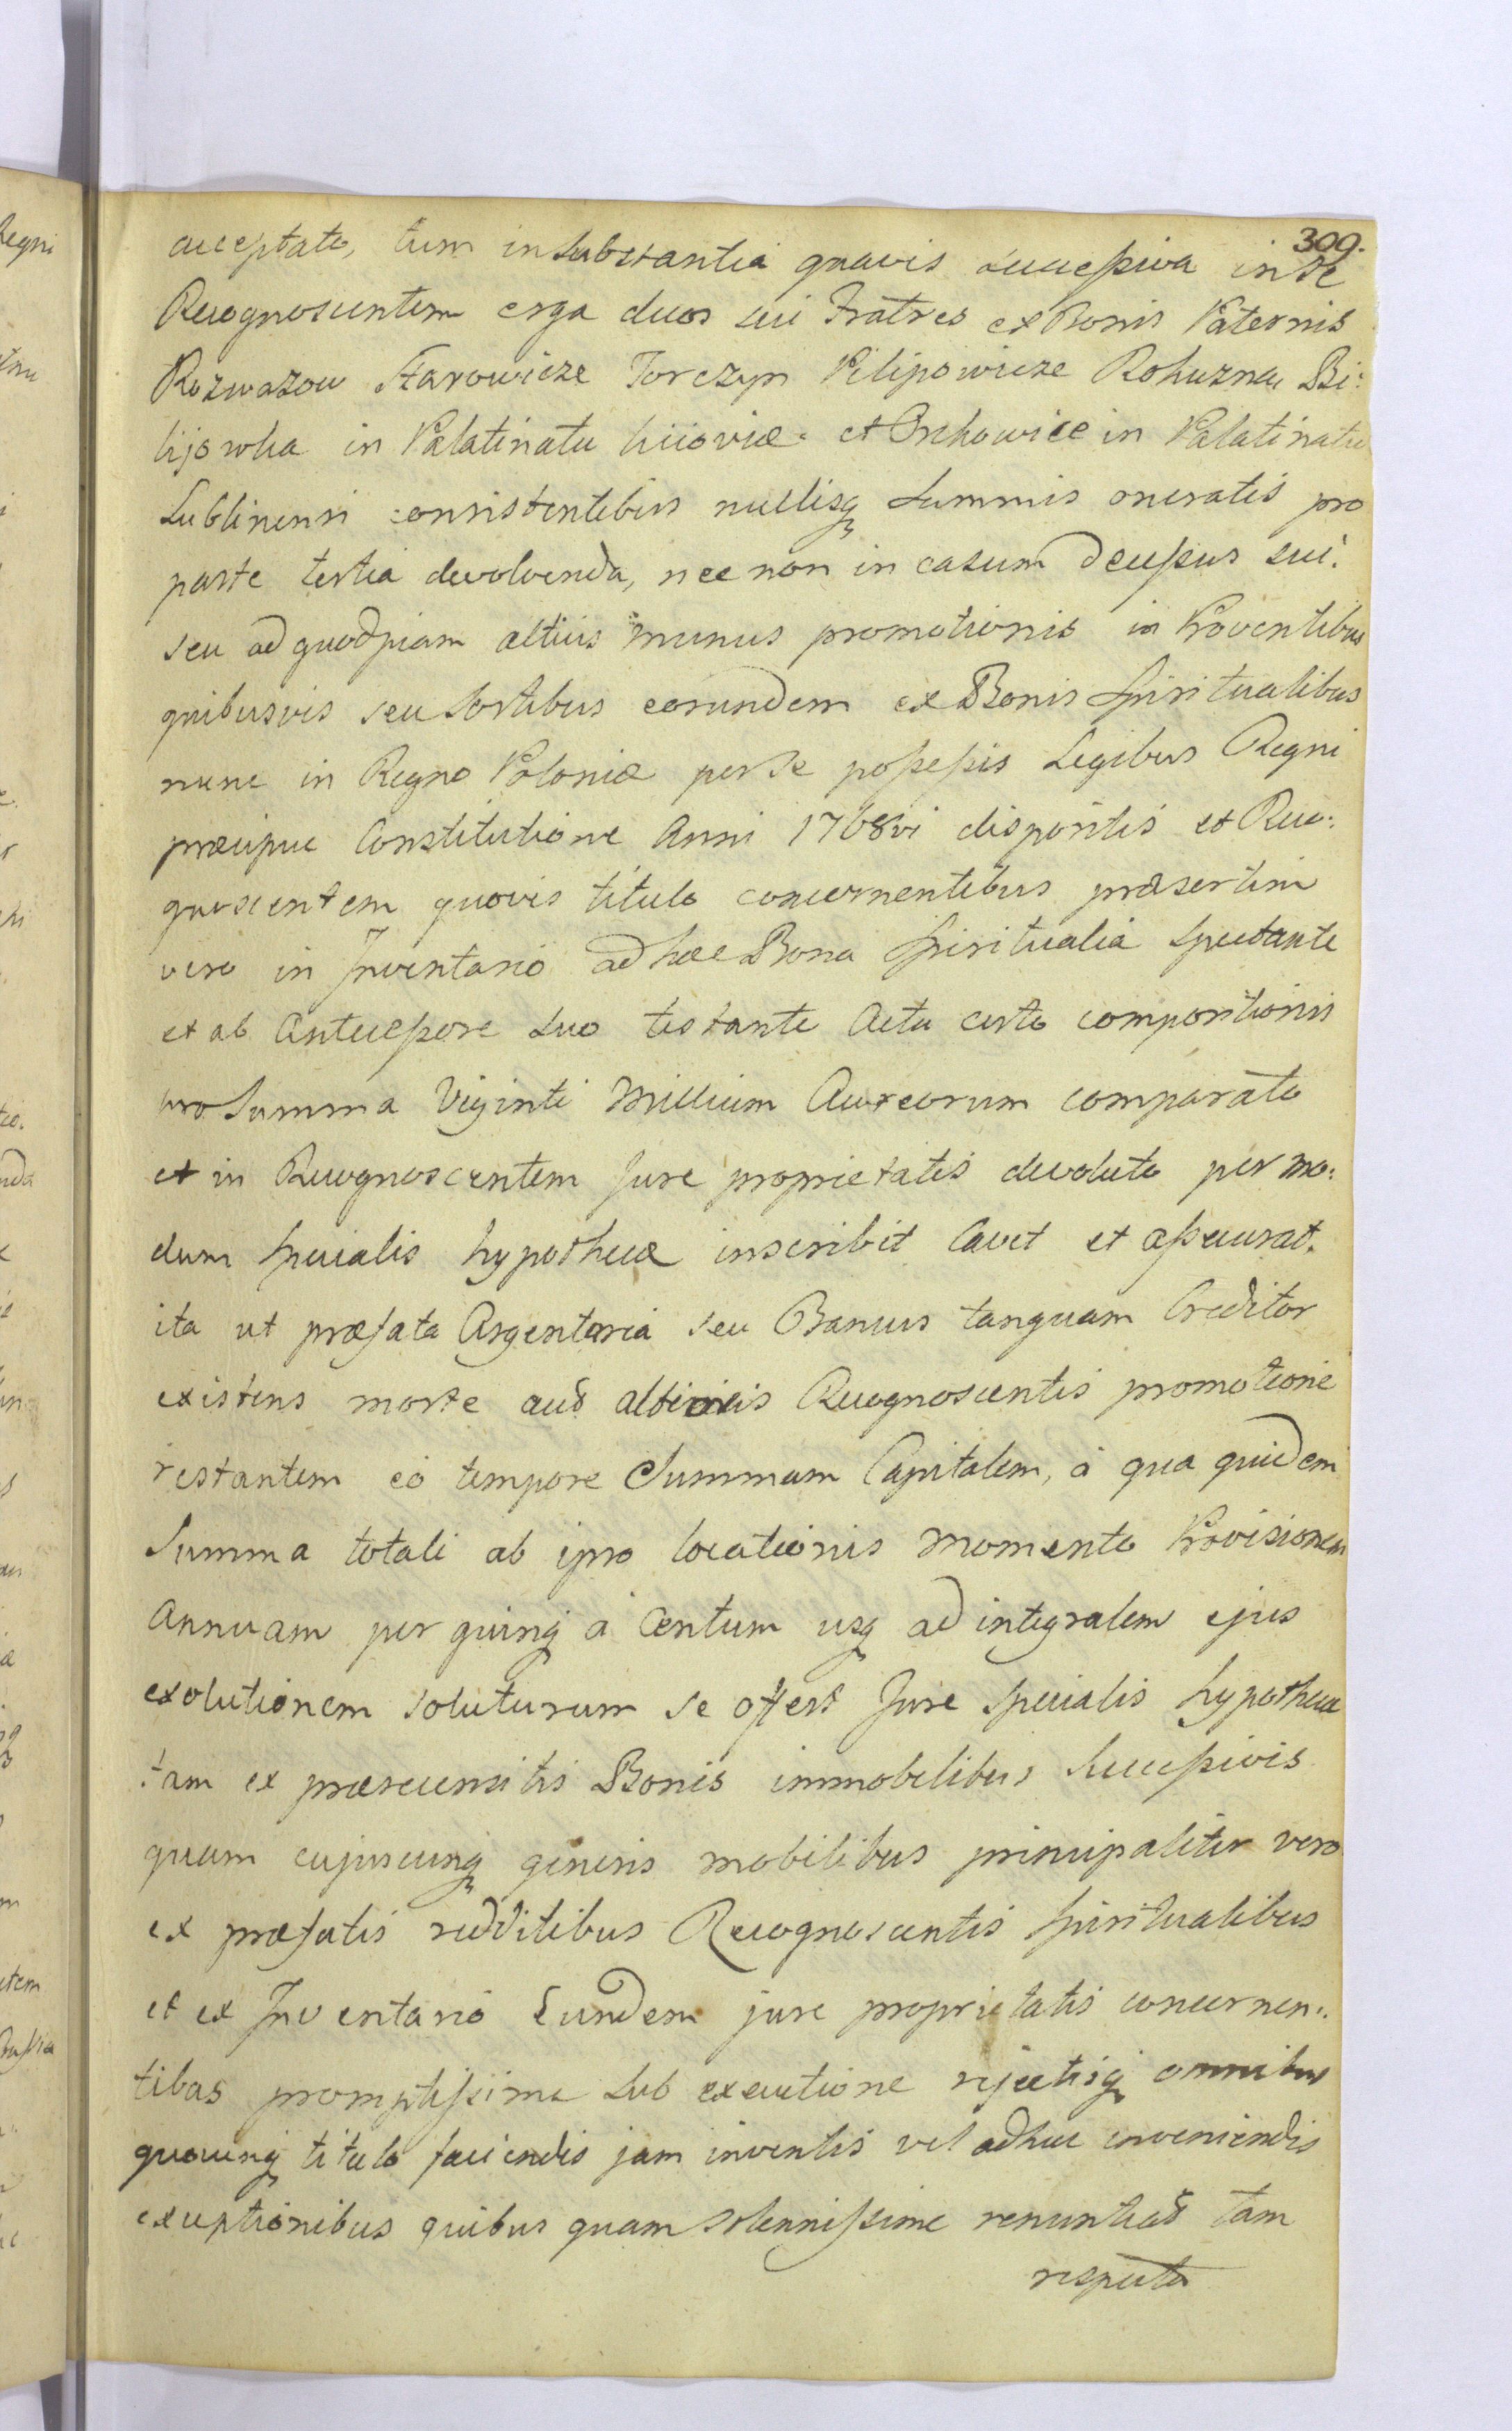 309.
acceptato, tum in substantia quavis successiva in se
Recognoscentem erga duos sui Fratres ex Bonis Paternis
Rozwazow Starowicze Torczyn Pilipowicze Rohuzna Bi:
lijowka in Palatinatu Kiioviæ et Orchowice in Palatinatu
Lublinensi consistentibus nullisq Summis oneratis pro
parte tertia devolvenda, nec non in casum decessus sui
seu ad quodpiam altius munus promotionis in Proventibus
quibusvis seu Sortibus eorundem ex Bonis Spiritualibus
nunc in Regno Poloniæ per se possessis Legibus Regni
præcipue Constitutione Anni 1768vi dispositis et Reco:
gnoscentem quovis titulo concernentibus præsertim
vero in Inventario ad hæc Bona Spiritualia Spectante
et ab Antecessore Suo testante Actu certo compositionis
pro Summa Viginti Millium Aureorum comparato
et in Recognoscentem Jure proprietatis devoluto per mo:
dum Specialis hypothecæ inscribit Cavet et assecurat.
ita ut præfata Argentaria seu Bancus tanquam Creditor
existens morte aut altioris Recognoscentis promotione
restantem eo tempore Summam Capitalem, à qua quidem
Summa totali ab ipso locationis momento Provisionem
Annuam per quinq à Centum usq ad integralem ejus
exolutionem soluturum se offert Jure Specialis hypothecæ
tam ex præscensitis Bonis immobilibus Successivis
quam cujuscunq generis mobilibus principaliter vero
ex præfatis redditibus Recognoscentis Spiritualibus
et ex Inventario Eundem jure proprietatis concernen:
tibus promptissima Sub executione rejectisq omnibus
quocunq titulo faciendis jam inventis vel adhuc inveniendis
exceptionibus quibus quam solennissime renuntiat tam
respectu